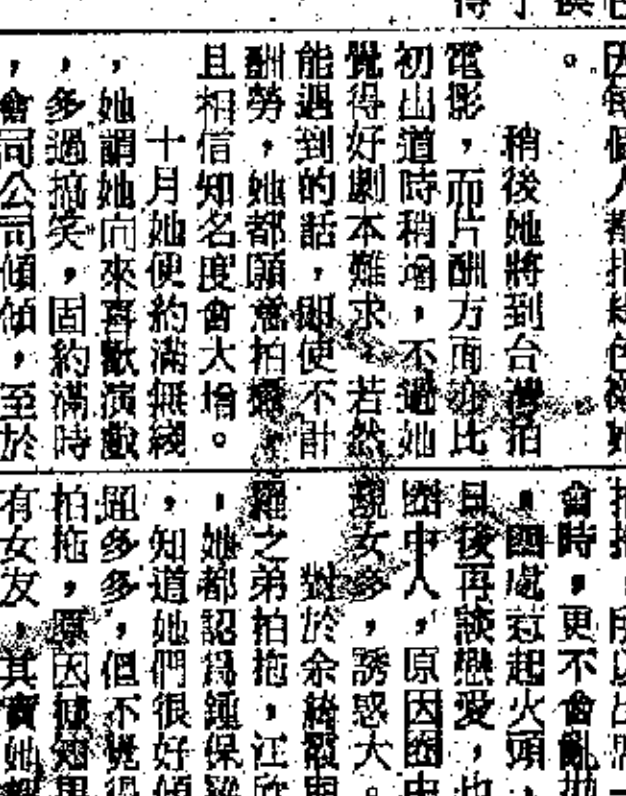 稍後她將到台灣拍
電影，而片酬方面亦比
初出道時稍增，不過她
覺得好劇本難求，若然
能遇到的話，即使不計
酬勞，她都願意拍攝，
且相信知名度會大增。
十月她便約滿無綫
，她謂她向來喜歡演戲
，多過搞笑，固約滿時
，會同公司傾傾，至於
會時，更不會亂拋
，惹起火頭，
再談戀愛，也
圈中人，原因圈中
女多，誘惑大。
對於余綺霞與
羅之弟拍拖，江欣
，她都認為鍾保羅
，知道她們很好傾
多多，但不覺得
拍拖，原因
有女友，其實她